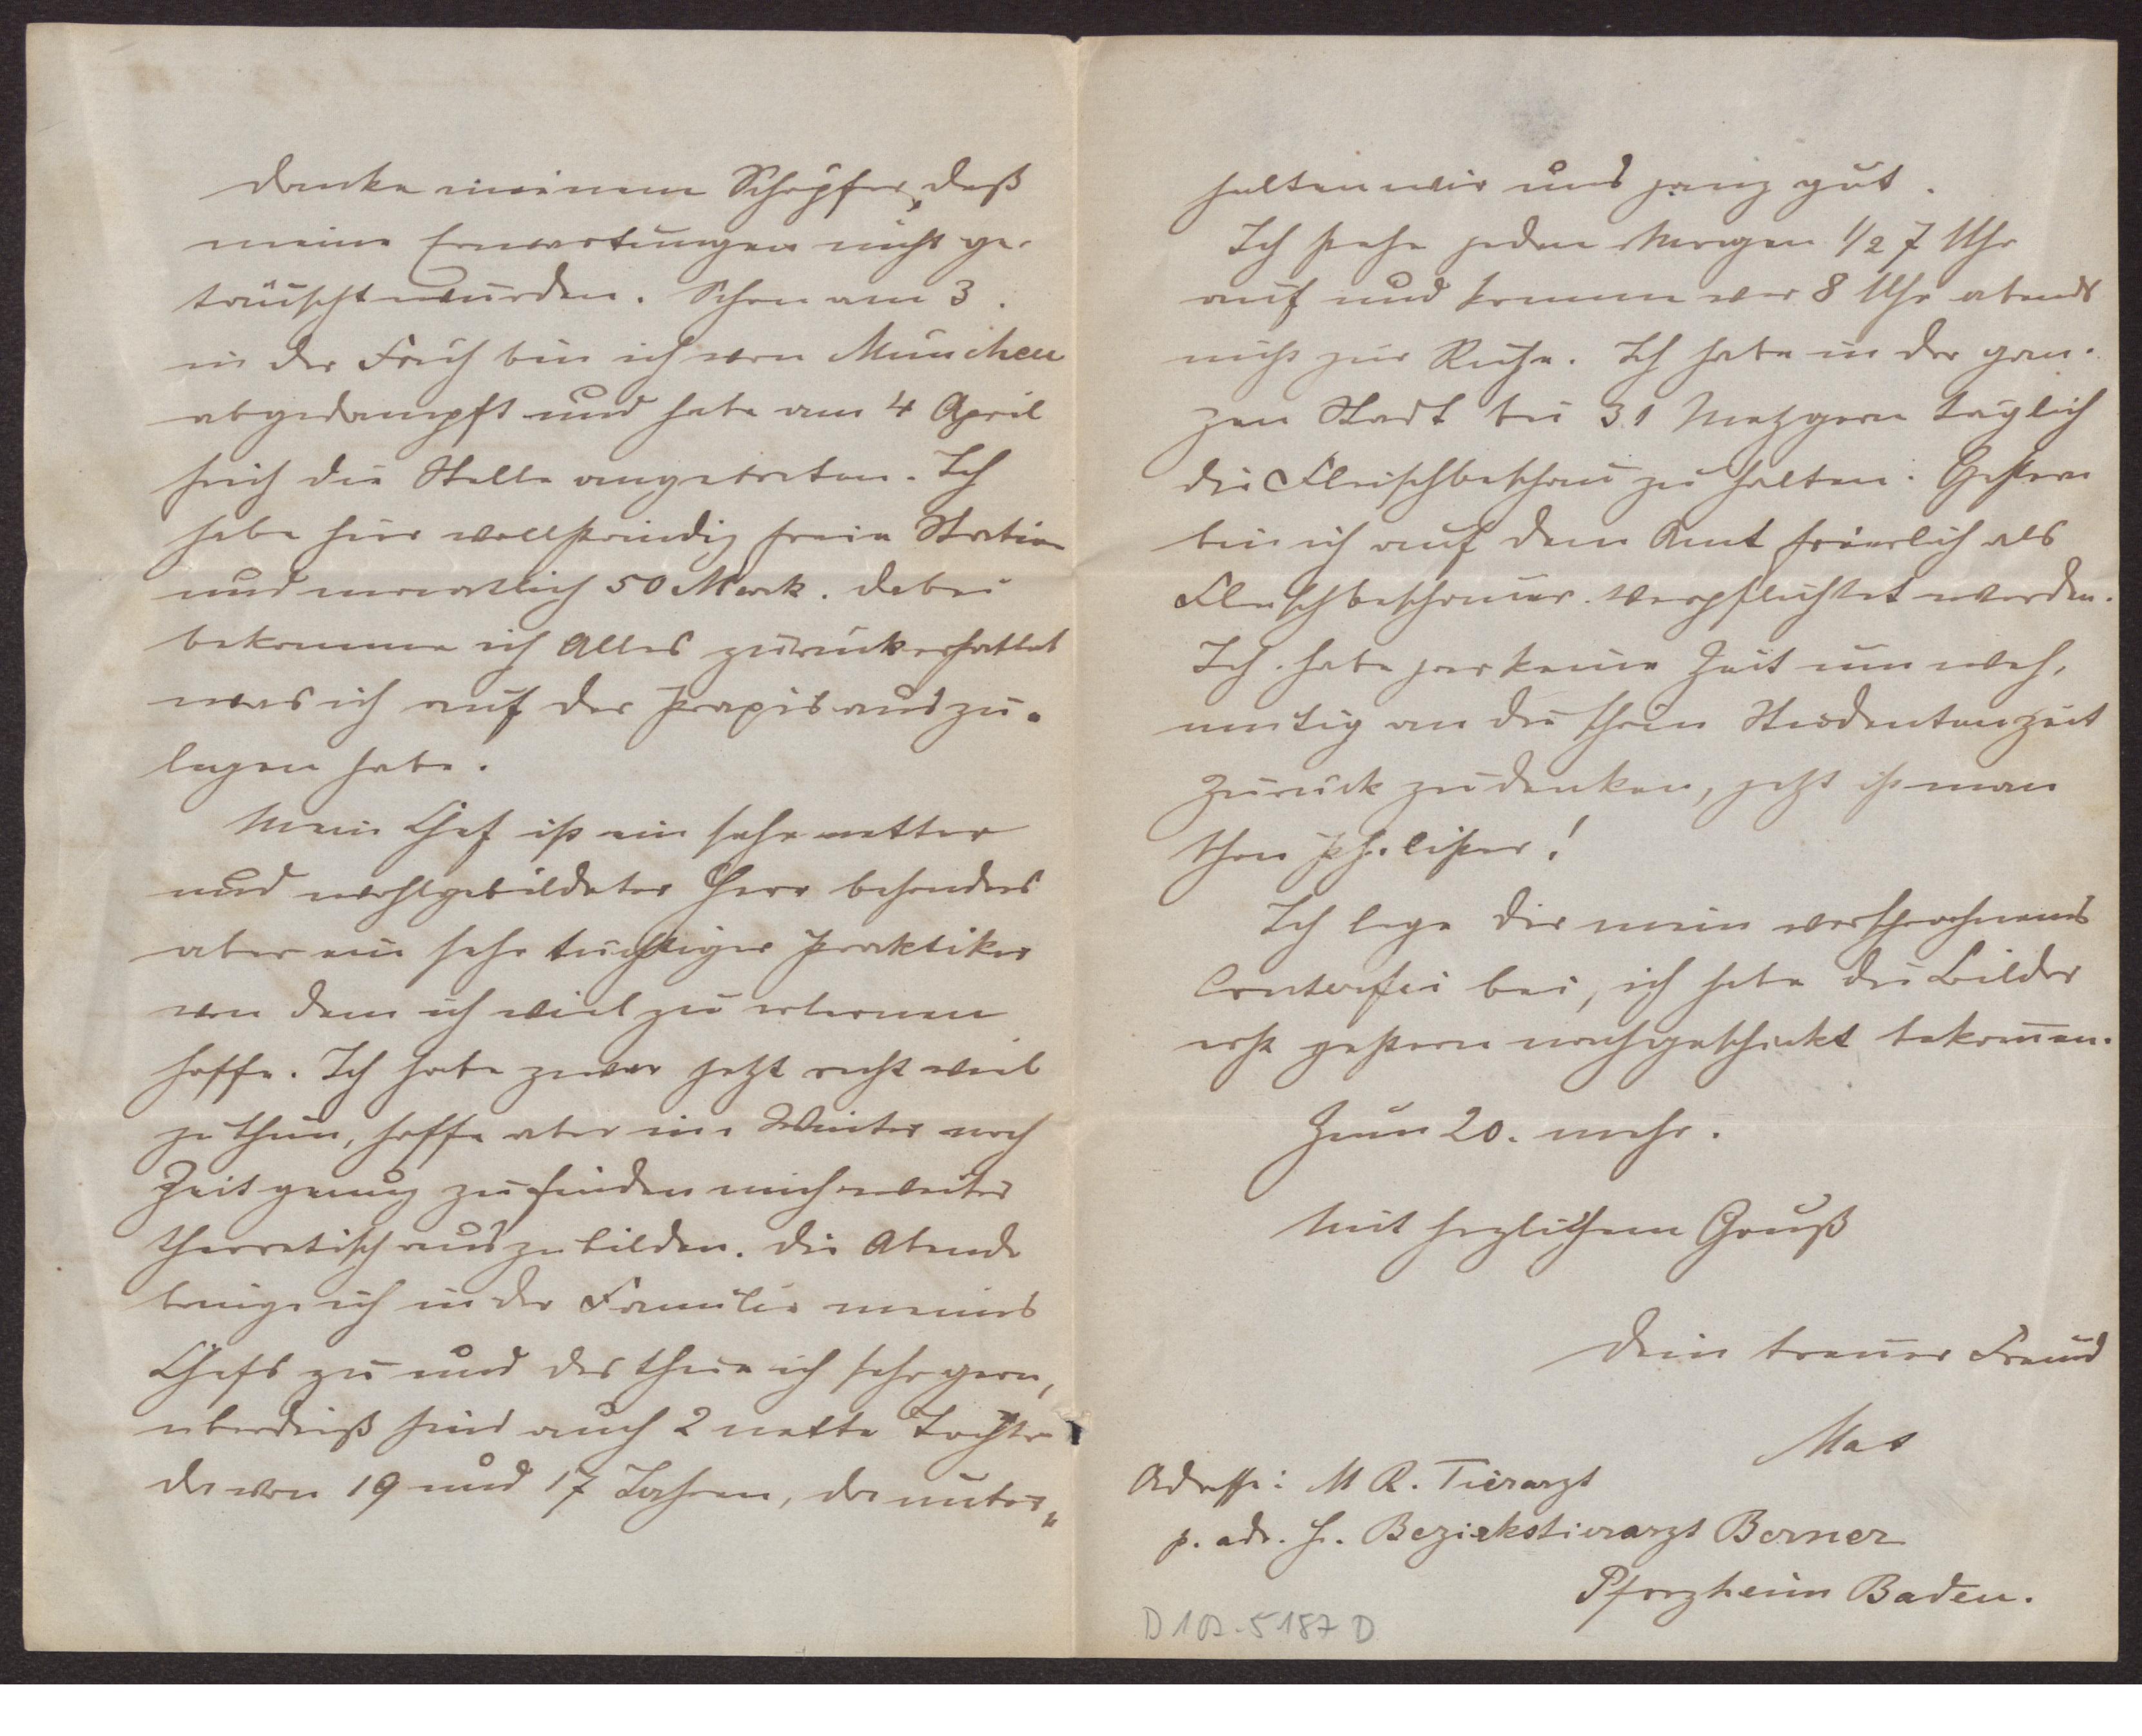 danke meinem Schöpfer, daß
meine Erwartungen nicht ge-
täuscht wurden. Schon am 3.
in der Früh bin ich von München
abgedampft und habe am 4 April
früh die Stelle angetreten. Ich
habe hier vollständig freie Station
und monatlich 50 Mark. dabei
bekomme ich Alles zurückerstattet
was ich auf der Praxis auszu-
legen habe.
Mein Chef ist ein sehr netter
und wohlgebildeter Herr besonders
aber ein sehr tüchtiger Praktiker
von dem ich viel zu erlernen
hoffe. Ich habe zwar jetzt recht viel
zu thun, hoffe aber im Winter noch
Zeit genug zu finden mich weiter
theoretisch auszubilden. Die Abende
bringe ich in der Familie meines
Chefs zu und das thue ich sehr gern,
überdieß sind auch 2 nette Töchter
da von 19 und 17 Jahren, da unter-
halten wir uns ganz gut.
Ich stehe jeden Morgen 1/2 7 Uhr
auf und komme vor 8 Uhr abends
nicht zur Ruhe. Ich habe in der gan-
zen Stadt bei 31 Metzgern täglich
die Fleischbeschau zu halten. Gestern
bin ich auf dem Amt feierlich als
Fleischbeschauer verpflichtet worden.
Ich habe gar keine Zeit um weh-
mutig an die schöne Studentenzeit
zurück zu denken, jetzt ist man
schon Philister!
Ich lege dir mein versprochenes
Conterfei bei, ich habe die Bilder
erst gestern nachgeschickt bekommen.
Zum 20. mehr.
Mit herzlichem Gruß
Dein treuer Freund
Max
Adresse: M R. Tierarzt
p. adr. H. Bezirkstierarzt Berner
Pforzheim Baden.
D 102.5187 D